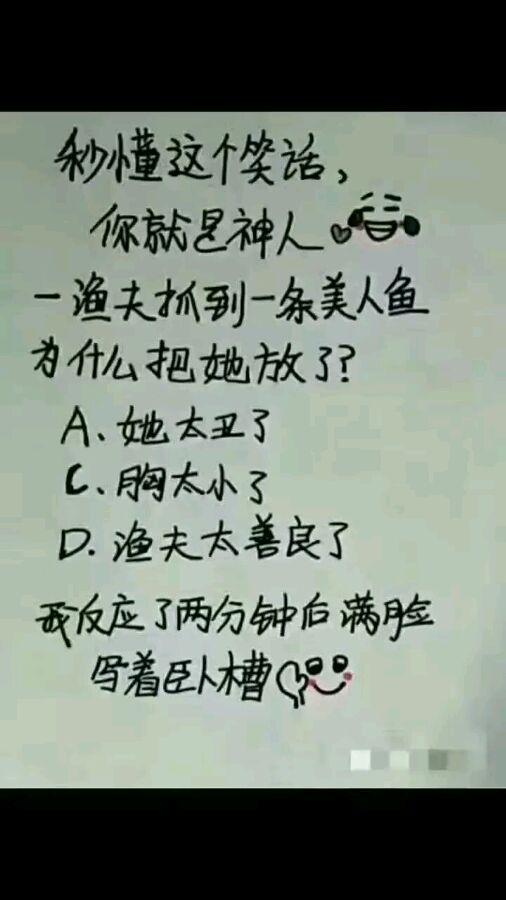 秒懂这个笑话,
你就是神人
一渔夫抓到一条美人鱼
为什么把她放了?
A、她太丑了
C、胸太小了
D、渔夫太善良了
我反应了两分钟后满脸
写着卧槽